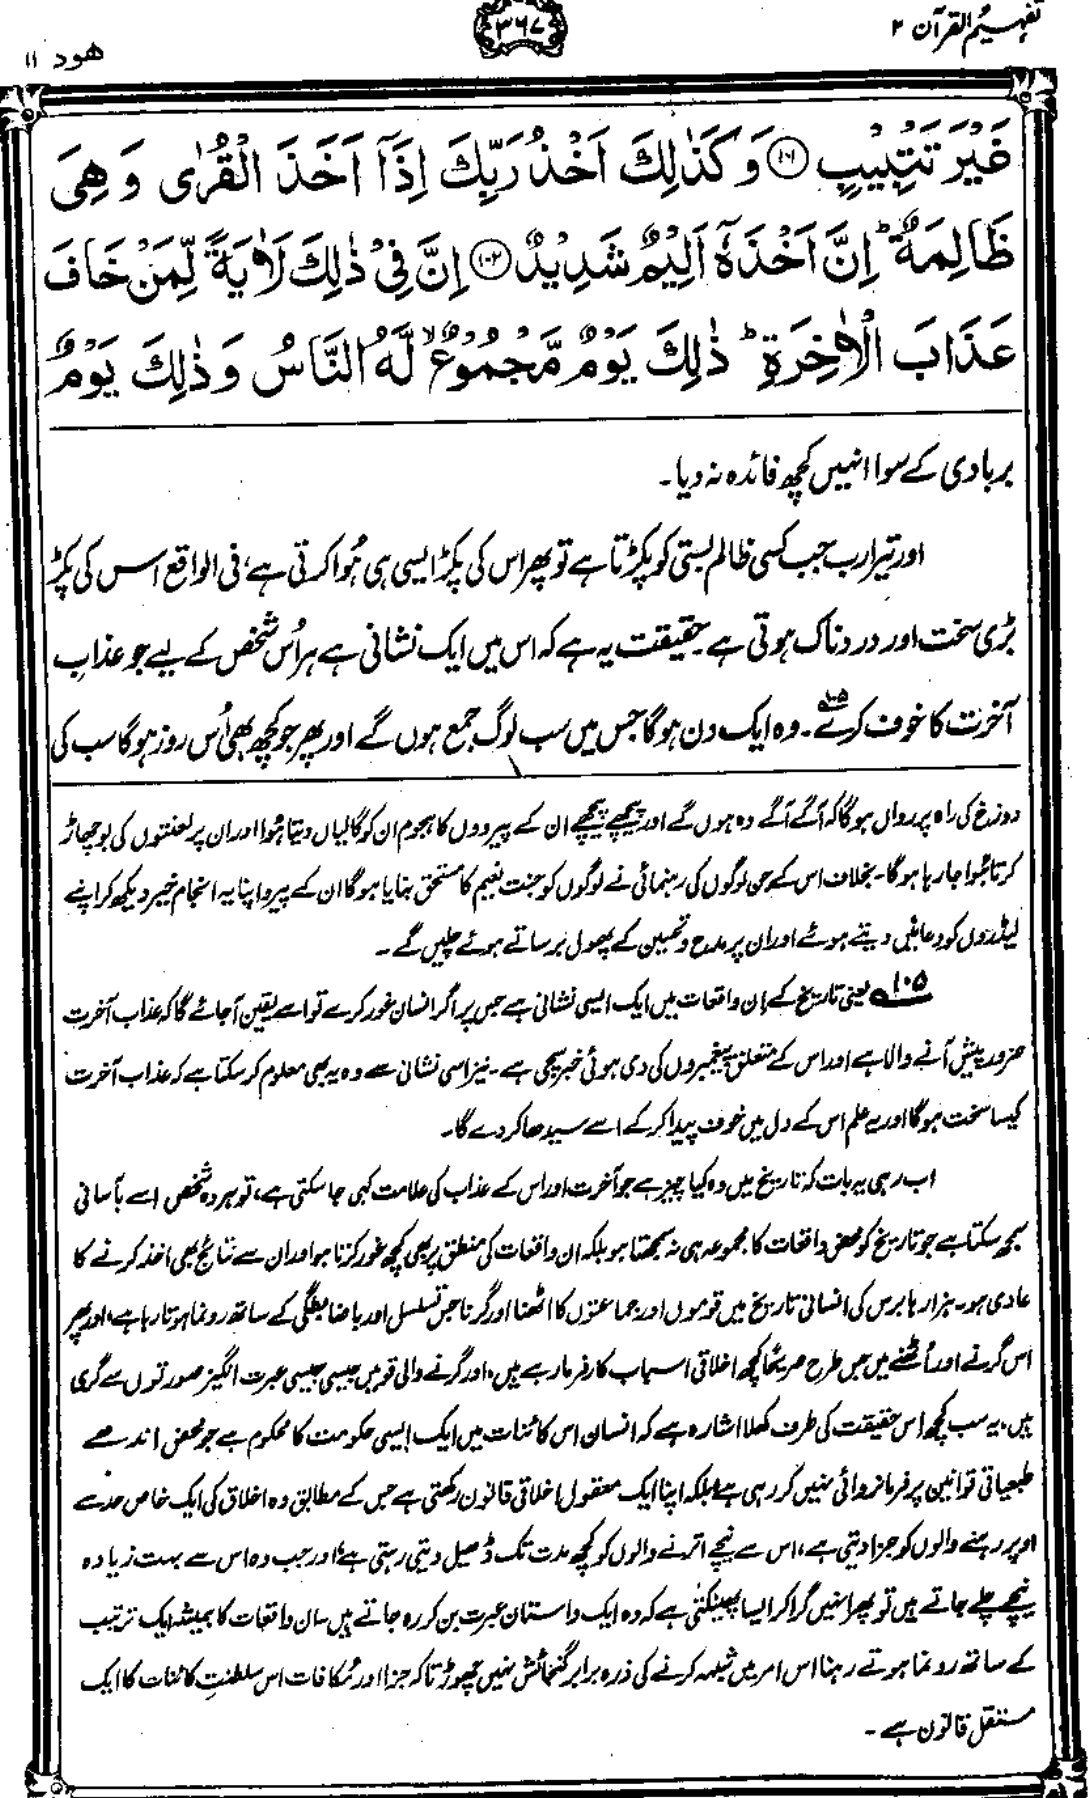 تفہیم القرآن ۲
۳۶۷
هود ۱۱
غَيْرَ تَتْبِيْبٍ ۝۱۰۱ وَ كَذٰلِكَ اَخْذُ رَبِّكَ اِذَآ اَخَذَ الْقُرٰى وَ هِىَ
ظَالِمَةٌ ؕ اِنَّ اَخْذَهٗۤ اَلِيْمٌ شَدِيْدٌ ۝۱۰۲ اِنَّ فِىْ ذٰلِكَ لَاٰيَةً لِّمَنْ خَافَ
عَذَابَ الْاٰخِرَةِ ؕ ذٰلِكَ يَوْمٌ مَّجْمُوْعٌ ۙ لَّهُ النَّاسُ وَ ذٰلِكَ يَوْمٌ
بربادی کے سوا انہیں کچھ فائدہ نہ دیا۔
اور تیرا رب جب کسی ظالم بستی کو پکڑتا ہے تو پھر اس کی پکڑ ایسی ہی ہُوا کرتی ہے، فی الواقع اس کی پکڑ
بڑی سخت اور دردناک ہوتی ہے حقیقت یہ ہے کہ اس میں ایک نشانی ہے ہر اُس شخص کے لیے جو عذابِ
آخرت کا خوف کرے۱۰۵۔ وہ ایک دن ہوگا جس میں سب لوگ جمع ہوں گے اور پھر جو کچھ بھی اُس روز ہوگا سب کی
دوزخ کی راہ پر رواں ہوگا کہ آگے آگے وہ ہوں گے اور پیچھے پیچھے ان کے پیرووں کا ہجوم ان کو گالیاں دیتا ہُوا اور ان پر لعنتوں کی بوچھاڑ
کرتا ہُوا جا رہا ہوگا۔ بخلاف اس کے جن لوگوں کی رہنمائی نے لوگوں کو جنت نعیم کا مستحق بنایا ہوگا ان کے پیرو اپنا یہ انجام خیر دیکھ کر اپنے
لیڈروں کو دعائیں دیتے ہوئے اور ان پر مدح و تحسین کے پھول برساتے ہوئے چلیں گے۔
۱۰۵ یعنی تاریخ کے اِن واقعات میں ایک ایسی نشانی ہے جس پر اگر انسان غور کرے تو اسے یقین آجائے گا کہ عذاب آخرت
ضرور پیش آنے والا ہے اور اس کے متعلق پیغمبروں کی دی ہوئی خبر سچی ہے۔ نیز اسی نشانی سے وہ یہ بھی معلوم کر سکتا ہے کہ عذاب آخرت
کیسا سخت ہوگا اور یہ علم اس کے دل میں خوف پیدا کر کے اسے سیدھا کر دے گا۔
اب رہی یہ بات کہ تاریخ میں وہ کیا چیز ہے جو آخرت اور اس کے عذاب کی علامت کہی جا سکتی ہے، تو ہر وہ شخص اسے بآسانی
سمجھ سکتا ہے جو تاریخ کو محض واقعات کا مجموعہ ہی نہ سمجھتا ہو بلکہ ان واقعات کی منطق پر بھی کچھ غور کرتا ہو اور ان سے نتائج بھی اخذ کرنے کا
عادی ہو۔ ہزار ہا برس کی انسانی تاریخ میں قوموں اور جماعتوں کا اٹھنا اور گرنا جس تسلسل اور باضابطگی کے ساتھ رونما ہوتا رہا ہے، اور پھر
اس گرنے اور اُٹھنے میں جس طرح صریحًا کچھ اخلاقی اسباب کارفرما رہے ہیں، اور گرنے والی قومیں جیسی جیسی عبرت انگیز صورتوں سے گری
ہیں، یہ سب کچھ اس حقیقت کی طرف کھلا اشارہ ہے کہ انسان اس کائنات میں ایک ایسی حکومت کا محکوم ہے جو محض اندھے
طبیعیاتی قوانین پر فرمانروائی نہیں کر رہی ہے بلکہ اپنا ایک معقول اخلاقی قانون رکھتی ہے جس کے مطابق وہ اخلاق کی ایک خاص حد سے
اوپر رہنے والوں کو جزا دیتی ہے، اس سے نیچے اترنے والوں کو کچھ مدت تک ڈھیل دیتی رہتی ہے، اور جب وہ اس سے بہت زیادہ
نیچے چلے جاتے ہیں تو پھر انہیں گرا کر ایسا پھینکتی ہے کہ وہ ایک داستان عبرت بن کر رہ جاتے ہیں۔ ان واقعات کا ہمیشہ ایک ترتیب
کے ساتھ رونما ہوتے رہنا اس امر میں شبہہ کرنے کی ذرہ برابر گنجائش نہیں چھوڑتا کہ جزا اور مُکافات اس سلطنتِ کائنات کا ایک
مستقل قانون ہے۔